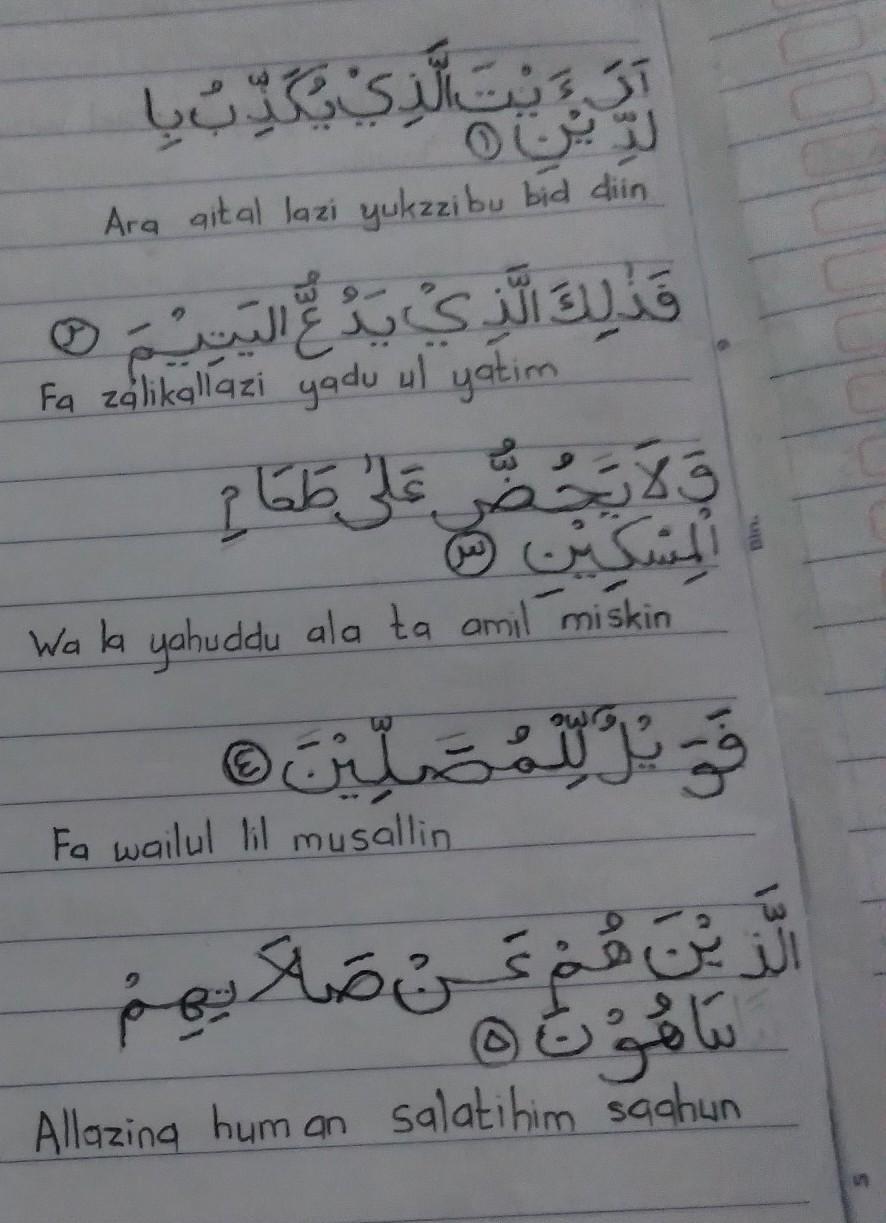 اَرَءَيْتَ الَّذِيْ يُكَذِّبُ بِا
لدِّيْنِ ①
Ara aital lazi yukzzibu bid diin
فَذٰلِكَ الَّذِيْ يَدُعُّ الْيَتِيْمَ ②
Fa zalikallazi yadu ul yatim
وَلَا يَحُضُّ عَلٰى طَعَامِ
الْمِسْكِيْنِ ③
Wa la yahuddu ala ta amil miskin
فَوَيْلٌ لِّلْمُصَلِّيْنَ ④
Fa wailul lil musallin
الَّذِيْنَ هُمْ عَنْ صَلَاتِهِمْ
سَاهُوْنَ ⑤
Allazina hum an salatihim saahun